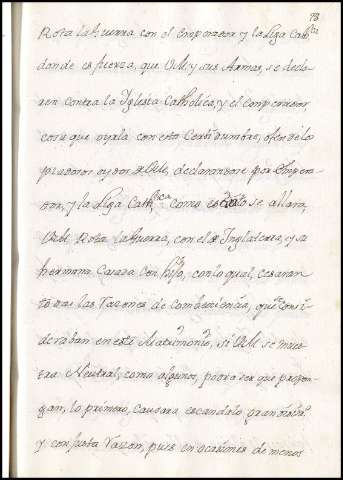 98
Rota la Guerra con el Emperador y la Liga Cathca
donde es fuerza, que VM y sus Armas, se decla-
ren contra la Iglesia Catholica, y el emperador
con que
con esta Certidumbre,
declarandose por Empera-
dor, y la Liga Cathca, como es
se allara,
VM Rota la Guerra, con el de Inglaterra, y su
hermana Casada con hijo, con lo qual, cesaran
todas las razones de combeniencia, que se consi-
deraban en este Matrimonio, si VM se mues-
tra Neutral, como algunos, podra ser que propon-
gan, lo primero, causara escandalo, grandisimo
y con justa razon, pues en ocasiones de menos